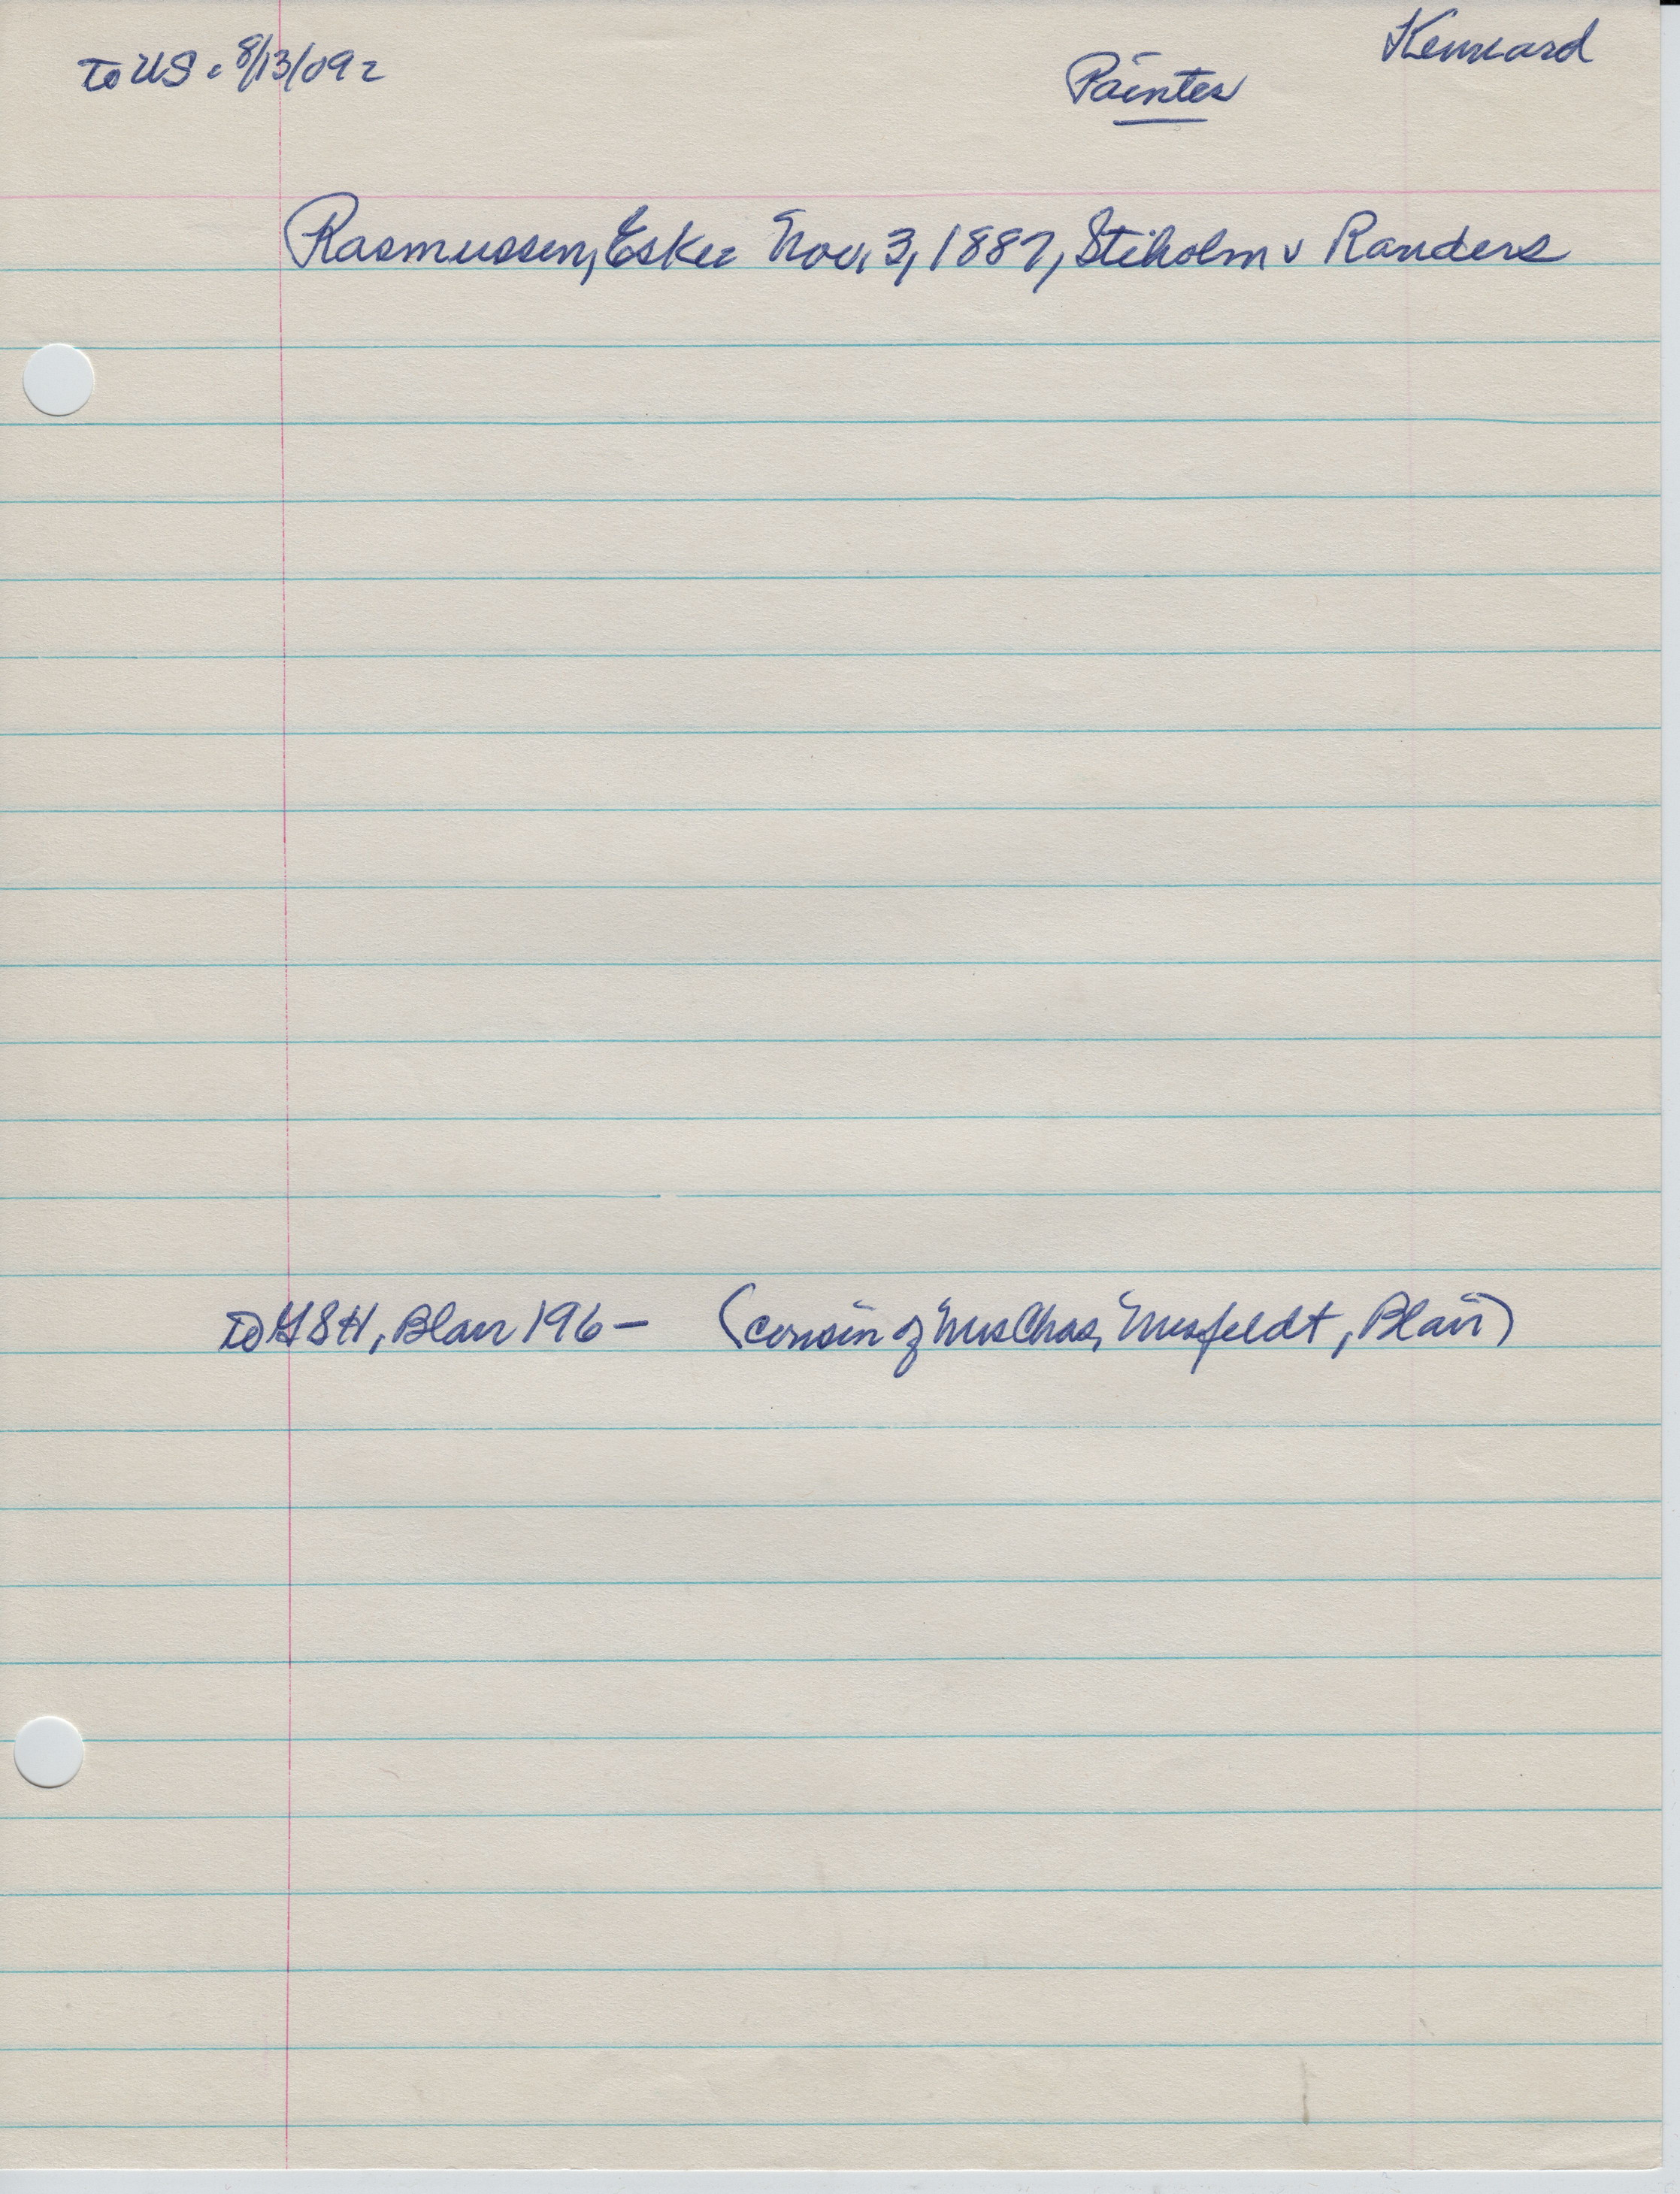 to US. 8/13/09
Painter
Kennard
Rasmussen, Esker Nov. 3, 1887, Stiholm v Randers
to GSH, Blair 196-
(cousin of Mrs Chas, Musfeldt, Blair)